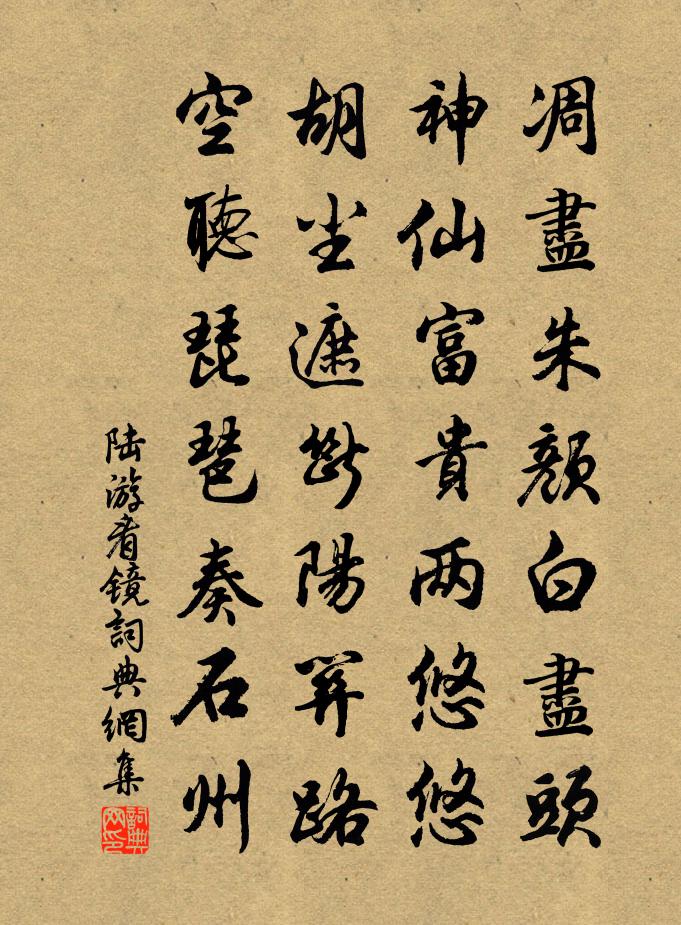 凋盡朱顏白盡頭
神仙富貴两悠悠
胡塵遮斷陽關路
空聽琵琶奏石州
陆游看镜詞典網集
詞典
网印